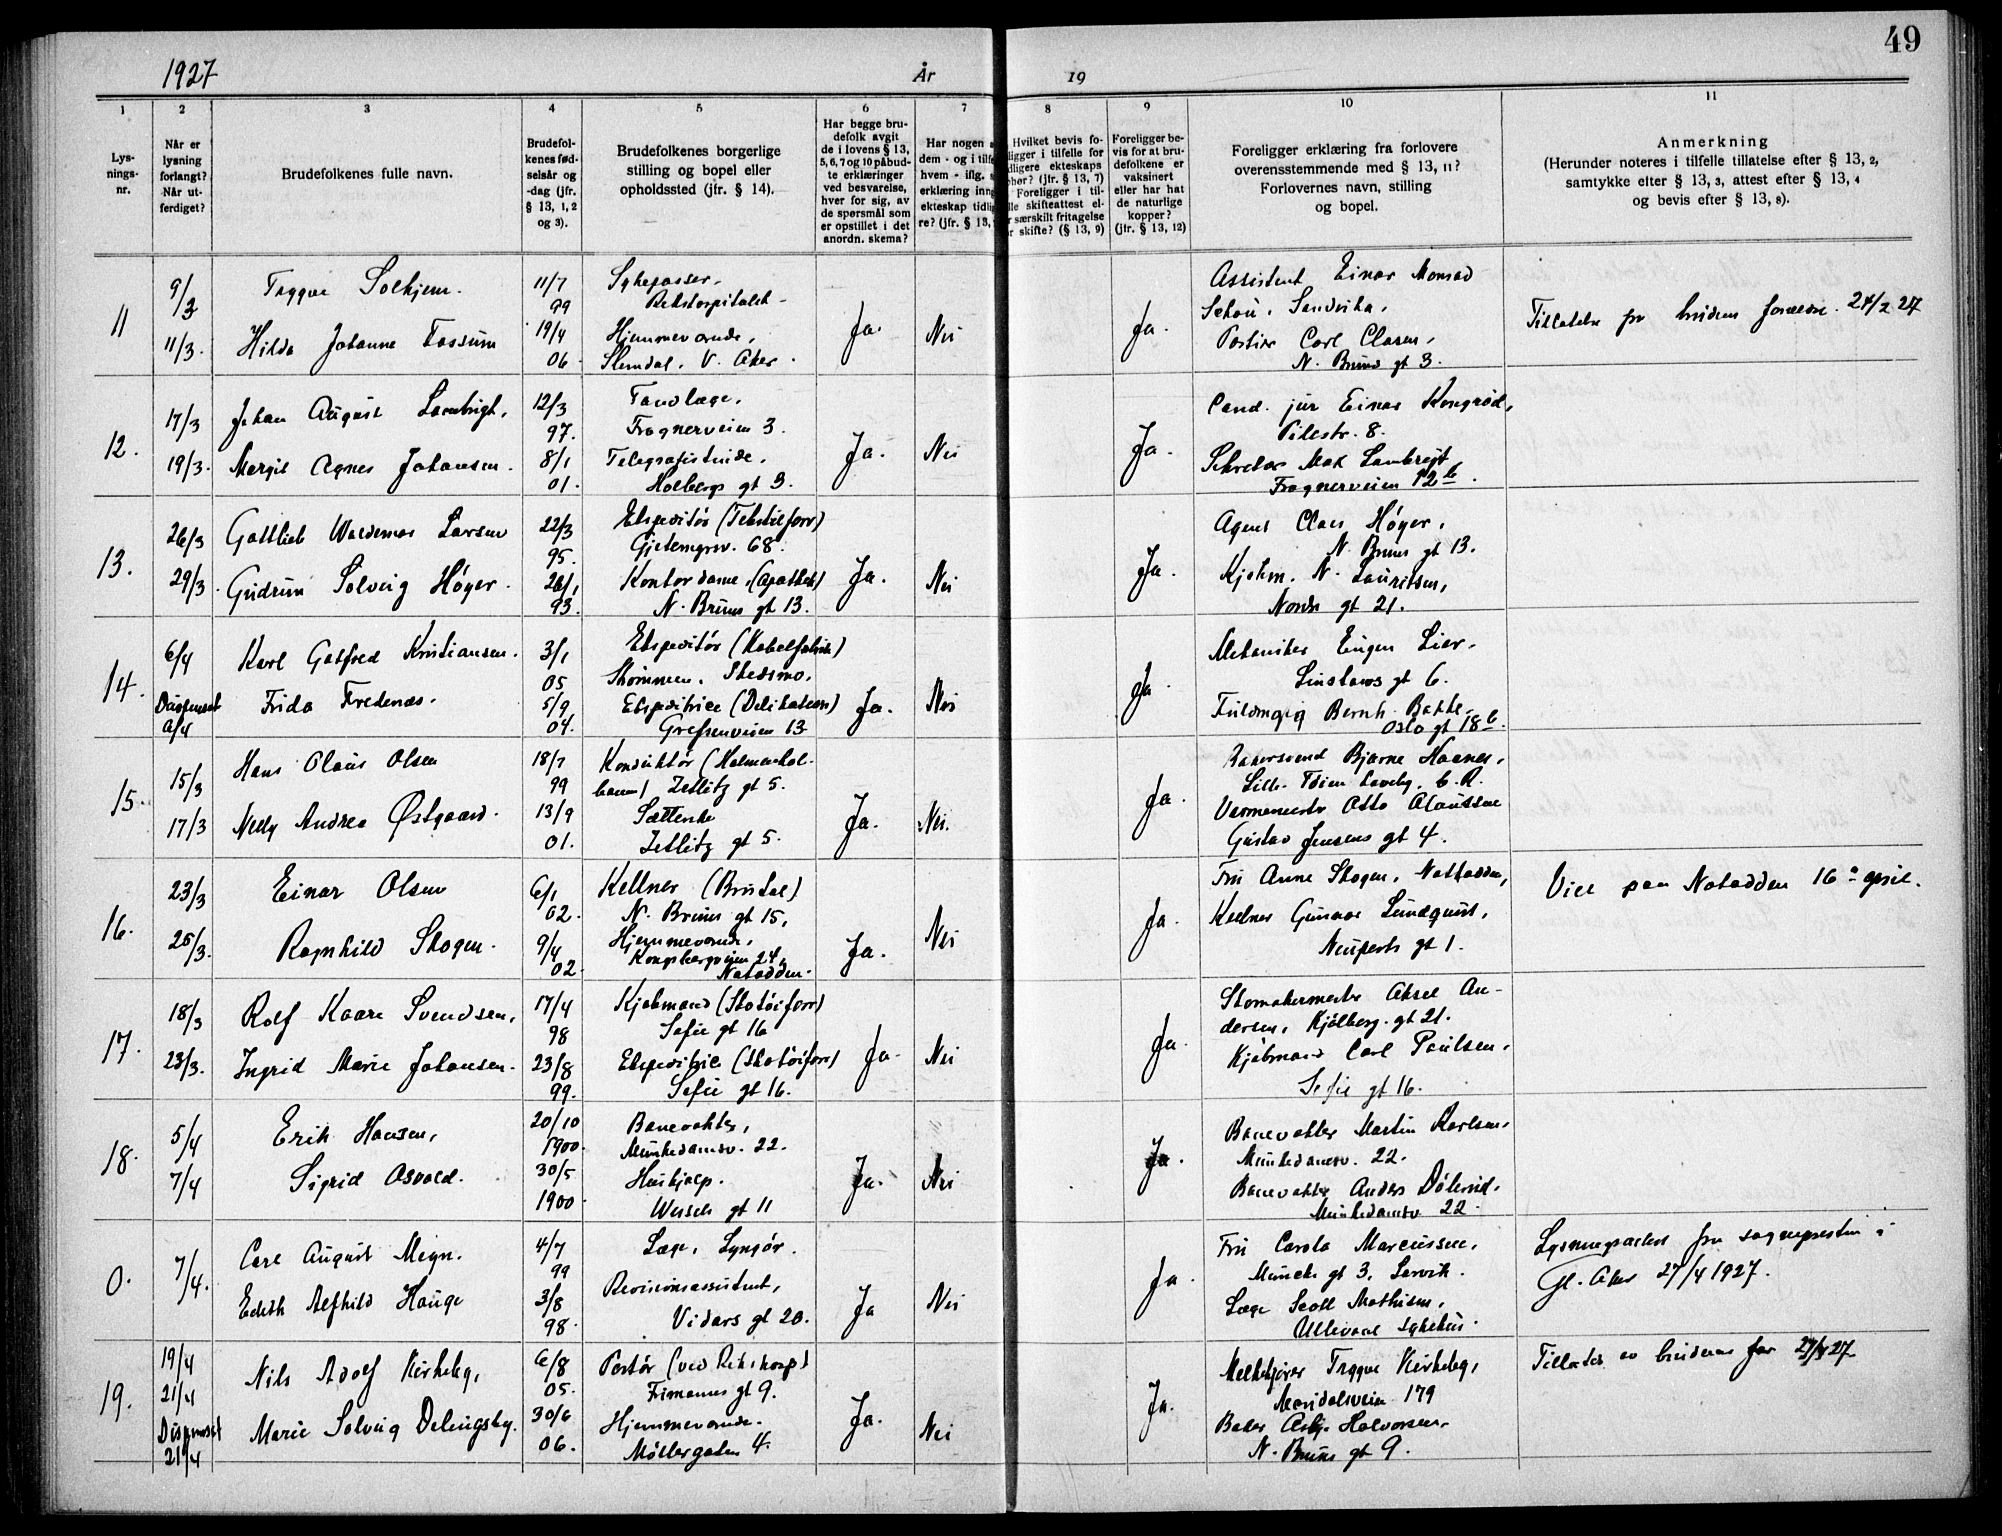 49
1927
År
19
1
2
3
4
5
6
7
8
9
10
11
Lys-
nings-
nr.
Når er
lysning
forlangt?
Når ut-
ferdiget?
Brudefolkenes fulle navn.
Brudefol-
kenes fød-
selsår og
-dag (jfr.
§ 13, 1, 2
og 3).
Brudefolkenes borgerlige
stilling og bopel eller
opholdssted (jfr. § 14).
Har begge bru-
defolk avgit
de i lovens § 13,
5, 6, 7 og 10 påbud-
te erklæringer
ved besvarelse,
hver for sig, av
de spørsmål som
er opstillet i det
anordn. skema?
Har nogen a
dem - og i tilfe
hvem - iflg. s
erklæring inng
ekteskap tidlig
re? (jfr. § 13,
Hvilket bevis fo-
ligger i tilfelle for
dligere ekteskaps
phør? (jfr. § 13, 7)
Foreligger i til-
lle skifteattest el-
r særskilt fritagelse
r skifte? (§ 13, 9)
Foreligger be-
vis for at bru-
defolkene er
vaksinert
eller har hat
de naturlige
kopper?
(jfr. § 13, 12)
Foreligger erklæring fra forlovere
overensstemmende med § 13, 11?
Forlovernes navn, stilling
og bopel.
Anmerkning
(Herunder noteres i tilfelle tillatelse efter § 13, 2,
samtykke efter § 13, 3, attest efter § 13, 4
og bevis efter § 13, 8).
11
9/3
11/3.
Trygve Solhjem.
Hilda Johanne Fossum
11/7
99
19/4
06.
Sykepasser,
Rikshospitalet
Hjemmeværende,
Slemdal. V. Aker.
Ja.
Nei
Ja.
Assistent Einar Monrad
Schou, Sandvika,
Portier Carl Clasen,
N. Bruns gt 3.
Tillatelse fra brudens foreldre. 24/2 27
12.
17/3
19/3.
Johan August Lambrigt,
Margit Agnes Johansen.
12/3
97.
8/1
01.
Tandlæge,
Frognerveien 3.
Telegrafistinde,
Holbergs gt 3.
Ja.
Nei
Ja.
Cand. jur Einar Kongrød,
Pilestr. 8.
Sekretær Max Lambrigt
Frognerveien 12 b.
13.
26/3
29/3.
Gottlieb Waldemar Larsen
Gudrun Solveig Høyer.
22/3
95.
26/1
93.
Ekspeditør (Tekstilforr)
Gjetemyrsv. 68.
Kontordame, (Apothek)
N. Bruns gt 13.
Ja.
Nei
Ja.
Agent Claus Høyer,
N. Bruns gt 13.
Kjøbm. N. Lauritsen,
Nordre gt 21.
14.
6/4
Dispenset
6/4
Karl Gotfred Kristiansen.
Frida Fredenæs.
3/1
05
5/9
04.
Ekspeditør (Kabelfabrik)
Strømmen, Skedsmo.
Ekspeditrice (Delikatesse)
Grefsenveien 13
Ja.
Nei
Ja.
Mekaniker Eugen Lier.
Linstows gt 6.
Fuldmægtig Bernh. Bakke,
Oslo gt 18 b.
15.
15/3
17/3
Hans Olaus Olsen
Nelly Andrea Østgaard.
18/7
99
13/9
01.
Konduktør (Holmenkol-
banen) Zetlitz gt 5.
Sætterske
Zetlitz gt 5.
Ja.
Nei.
Ja.
Bakersvend Bjarne Haanes,
Lille Tøien haveby, 6. R.
Varmemester Otto Claussen
Gustav Jensens gt 4.
16.
23/3
25/3.
Einar Olsen
Ragnhild Skogen.
6/1
02.
9/4
02.
Kellner (Bristol)
N. Bruns gt 15,
Hjemmeværende,
Kongsbergveien 24,
Notodden.
Ja.
Nei
Ja.
Fru Anne Skogen, Notodden,
Kellner Gunnar Lundquist,
Neuperts gt 1.
Viet paa Notodden 16de april.
17.
18/3
23/3.
Rolf Kaare Svendsen,
Ingrid Marie Johansen.
17/4
98
23/8
99.
Kjøbmand (Skotøiforr)
Sofie gt 16
Ekspeditrice (Skotøiforr)
Sofie gt 16.
Ja.
Nei
Ja.
Skomakermester Aksel An-
dersen, Kjølberg. gt 21.
Kjøbmand Carl Paulsen,
Sofie gt 16.
18.
5/4
7/4
Erik Hansen,
Sigrid Osvold.
20/10
1900.
30/5
1900.
Banevokter,
Munkedamsv. 22.
Hushjælp.
Wessels gt 11
Ja.
Nei
Ja.
Banevokter Martin Karlsen,
Munkedamsv. 22.
Banevokter Anders Dølerud,
Munkedamsv 22.
0.
7/4.
Carl August Megn.
Edith Alfhild Hauge
4/7
99
3/8
98.
Læge, Lyngør.
Revisionsassistent,
Vidars gt 20.
Ja
Nei
Ja.
Fru Carola Marcussen,
Munchs gt 3, Larvik.
Læge Scott Mathisen,
Ullevaal sykehus.
Lysningsattest fra sognepresten i
Gl. Aker 27/4 1927.
19.
19/4
21/4
Dispenset
21/4
Nils Adolf Kirkeby,
Marie Solveig Delingsby.
6/8
05.
30/6
06.
Portør (ved Rikshosp)
Frimanns gt 9.
Hjemmeværende.
Møllergaten 4.
Ja.
Nei
Ja.
Melkekjører Trygve Kirkeby,
Maridalsveien 179
Baker Asbj. Halvorsen,
N. Bruns gt 9.
Tillatelse av brudens far 27/3 27